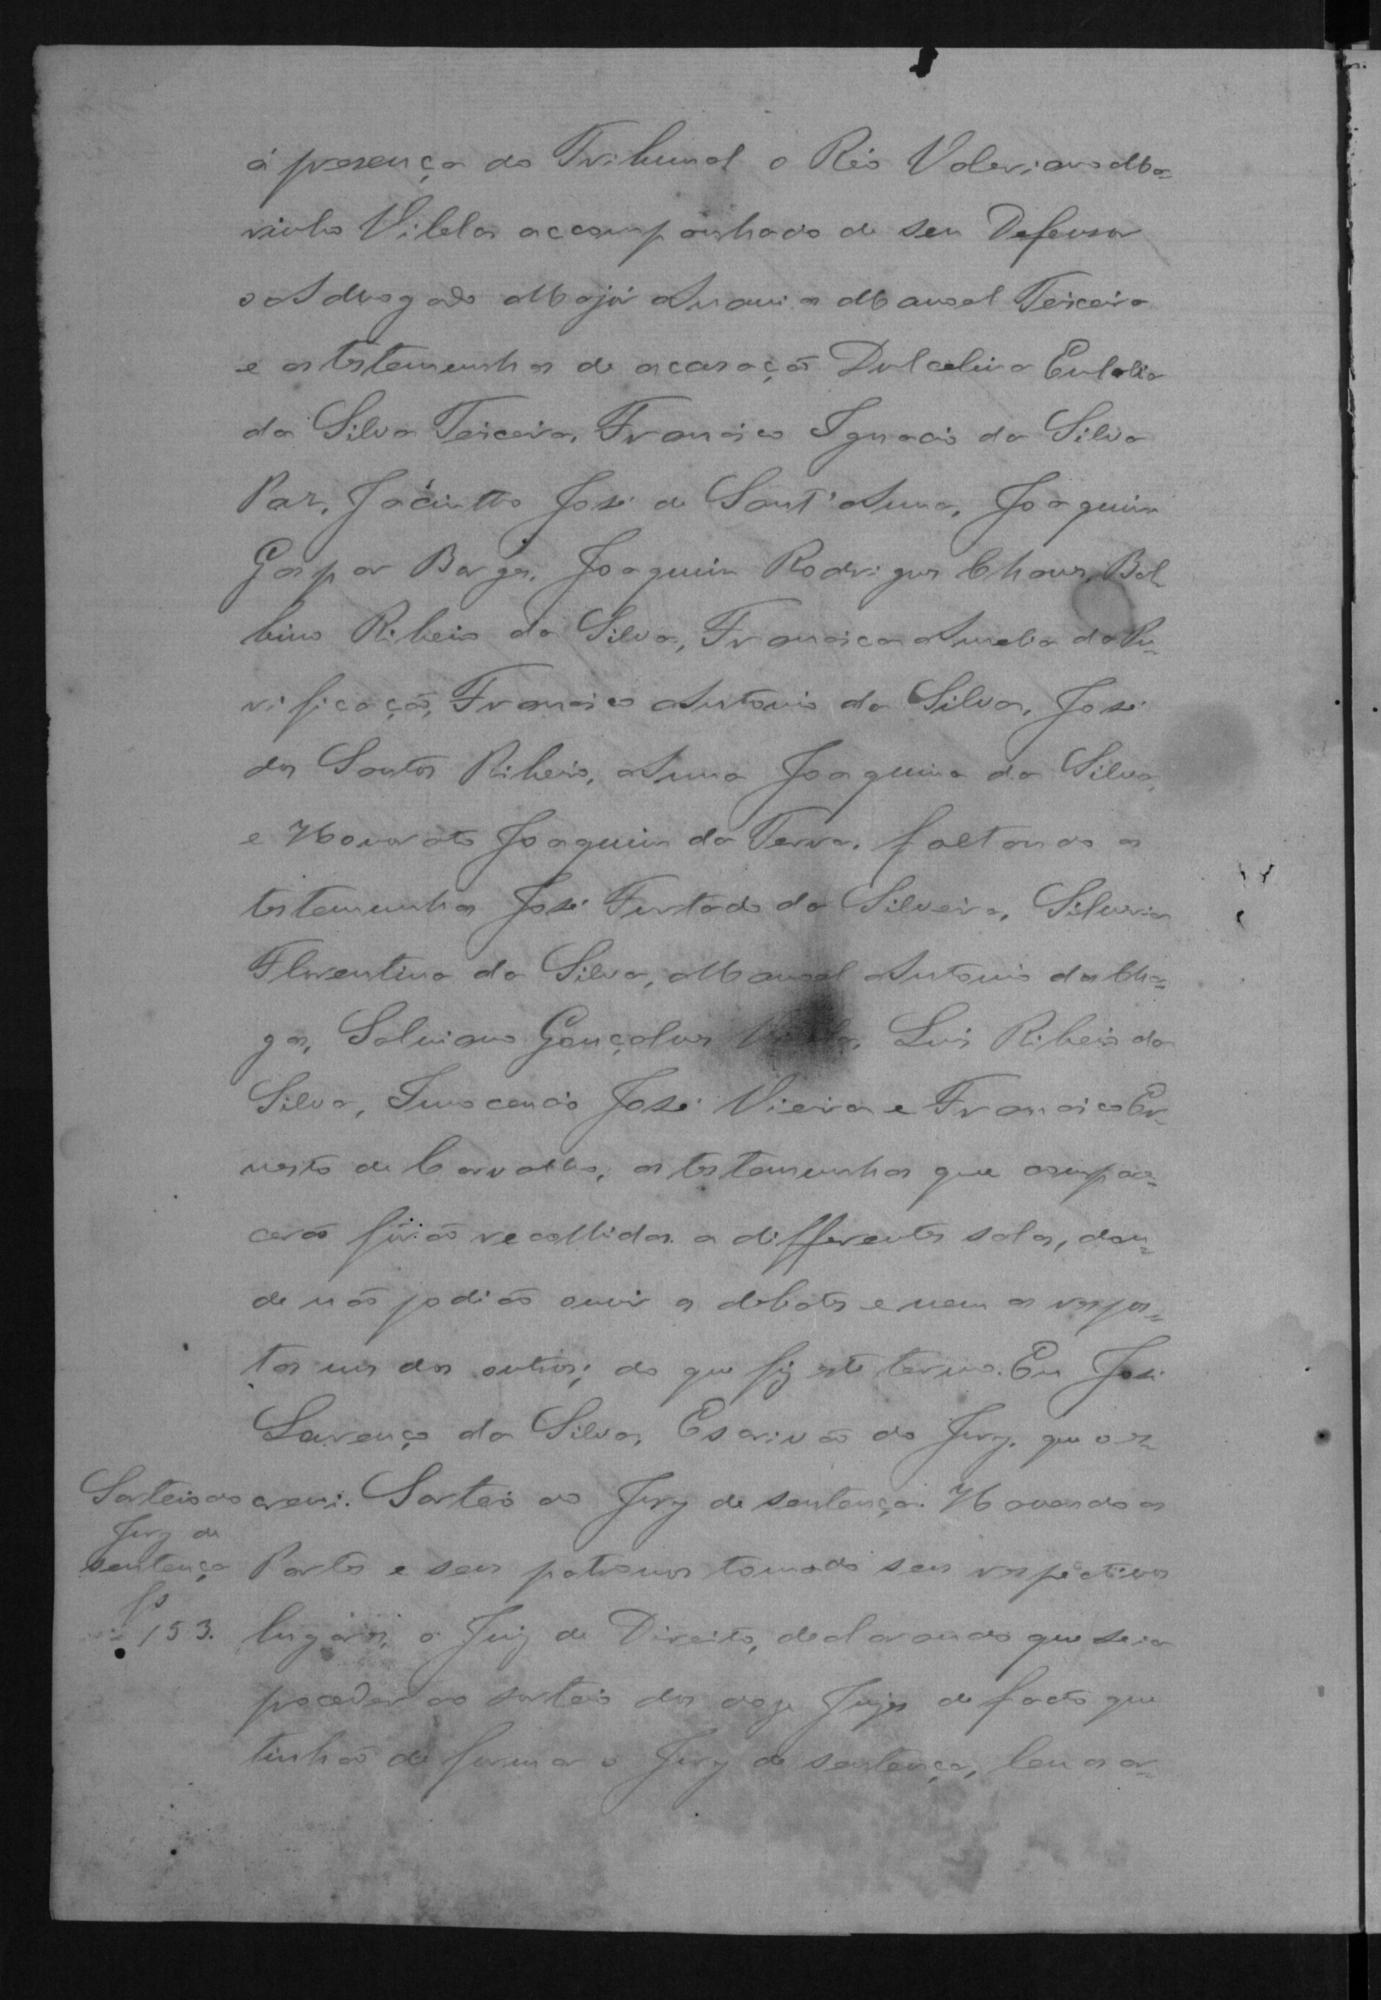 á presença do Tribunal o Réo Valeriano Ma=
rinho Vilela accompanhado de seu Defensor
o Advogado Major Manoel Teixeira
e as testemunhas de acusação Dulcelina Eulalia
da Silva Teixeira, Francisco Ignacio da Silva
Paz, Jacintho José de Sant'Anna, Joaquim
Gaspar Borges, Joaquim Rodrigues Chaves, Bal
bino Ribeiro da Silva, Francisca Amelia da Pu=
rificação, Francisco Antonio da Silva, José
dos Santos Ribeiro, Anna Joaquina da Silva,
e Honorato Joaquim da Terra, faltando as
testemunhas José Furtado da Silveira, Silveria
Florentina da Silva, Manoel Antonio das Cha=
gas, Salviano Gonçalves Luis Ribeiro da
Silva, Innocencio José Vieira e Francisco Er-
nesto de Carvalho, as testemunhas que compa=
cerão fôrão recolhidas a differentes salas, don=
de não podião ouvir os debates e nem as respos=
tas uns dos outros; do que fiz este termo. Eu José
Lourenço da Silva, Escrivão do Jury, que o es
crevi. Sorteio do Jury de sentença. Havendo as
Sorteio do
Jury de
sentença
fs
153.
Partes e seus patronos tomado seus respectivos
lugáres, o Juiz de Direito, declarando que se ia
proceder ao sorteio dos doze Juizes de facto que
tinhão de formar o Jury de sentença, leu os ar=